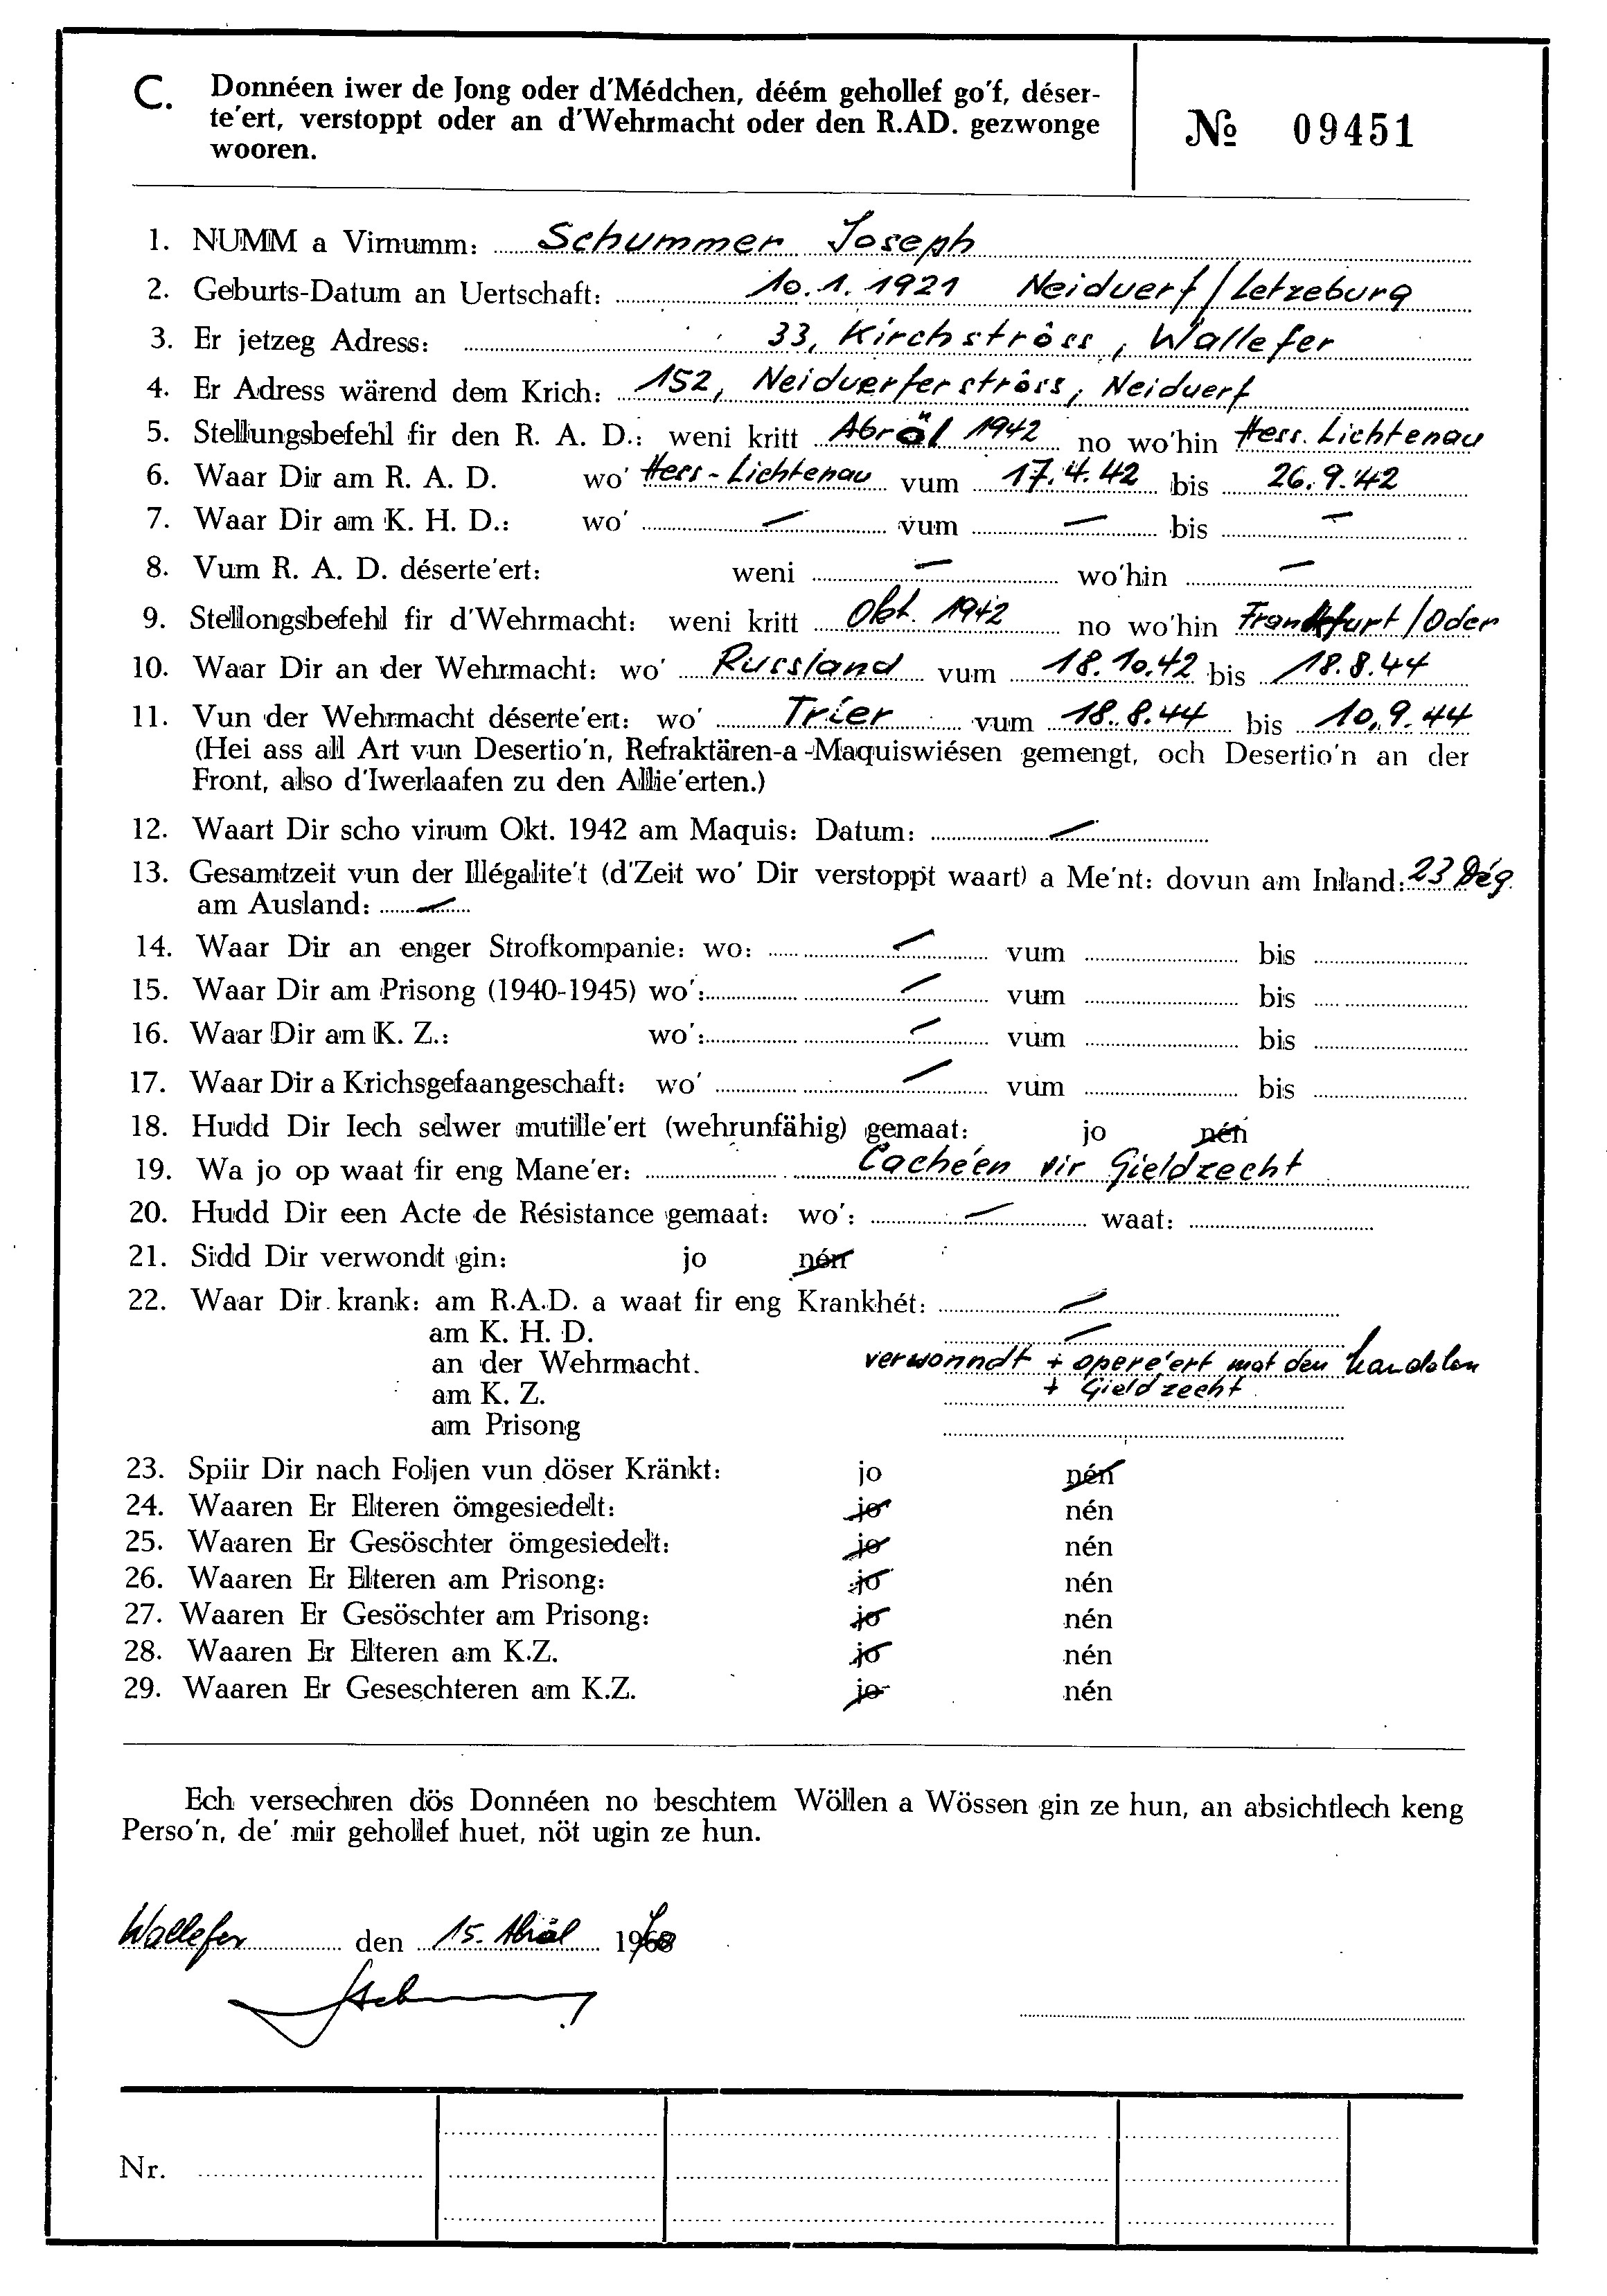 C. Donnéen iwer de Jong oder d'Médchen, déém gehollef go'f, déser-
te'ert, verstoppt oder an d'Wehrmacht oder den R.AD. gezwonge
wooren.
№ 09451
1. NUMM a Virnumm: Schummer Joseph
2. Geburts-Datum an Uertschaft: 10.1.1921 Neiduerf/Letzeburg
3. Er jetzeg Adress: 33, Kirchströss, Wallefer
4. Er Adress wärend dem Krich: 152, Neiduerferströss, Neiduerf
5. Stellungsbefehl fir den R. A. D.: weni kritt Abräl 1942 no wo'hin Hess. Lichtenau
6. Waar Dir am R. A. D. wo' Hess-Lichtenau vum 17.4.42 bis 26.9.42
7. Waar Dir am K. H. D.: wo' — vum — bis —
8. Vum R. A. D. déserte'ert: weni — wo'hin —
9. Stellongsbefehl fir d'Wehrmacht: weni kritt Okt. 1942 no wo'hin Frankfurt/Oder
10. Waar Dir an der Wehrmacht: wo' Russland vum 18.10.42 bis 18.8.44
11. Vun der Wehrmacht déserte'ert: wo' Trier vum 18.8.44 bis 10.9.44
(Hei ass all Art vun Desertio'n, Refraktären-a-Maquiswiésen gemengt, och Desertio'n an der
Front, also d'Iwerlaafen zu den Allie'erten.)
12. Waart Dir scho virum Okt. 1942 am Maquis: Datum: —
13. Gesamtzeit vun der Illégalite't (d'Zeit wo' Dir verstoppt waart) a Me'nt: dovun am Inland: 23 Dég
am Ausland: —
14. Waar Dir an enger Strofkompanie: wo: — vum bis
15. Waar Dir am Prisong (1940-1945) wo': — vum bis
16. Waar Dir am K. Z.: wo': — vum bis
17. Waar Dir a Krichsgefaangeschaft: wo' — vum bis
18. Hudd Dir Iech selwer mutille'ert (wehrunfähig) gemaat: jo nén
19. Wa jo op waat fir eng Mane'er: Cachéen vir Gieldzecht
20. Hudd Dir een Acte de Résistance gemaat: wo': — waat:
21. Sidd Dir verwondt gin: jo nén
22. Waar Dir krank: am R.A.D. a waat fir eng Krankhét: —
am K. H. D. —
an der Wehrmacht. verwonndt + operé'ert mat den Mandelen
am K. Z. + Gieldzecht
am Prisong
23. Spiir Dir nach Foljen vun döser Kränkt: jo nén
24. Waaren Er Elteren ömgesiedelt: jo nén
25. Waaren Er Gesöschter ömgesiedelt: jo nén
26. Waaren Er Elteren am Prisong: jo nén
27. Waaren Er Gesöschter am Prisong: jo nén
28. Waaren Er Elteren am K.Z. jo nén
29. Waaren Er Geseschteren am K.Z. jo nén
Ech versechren dös Donnéen no beschtem Wöllen a Wössen gin ze hun, an absichtlech keng
Perso'n, de' mir gehollef huet, nöt ugin ze hun.
Wallefer den 15. Abräl 19
Nr.